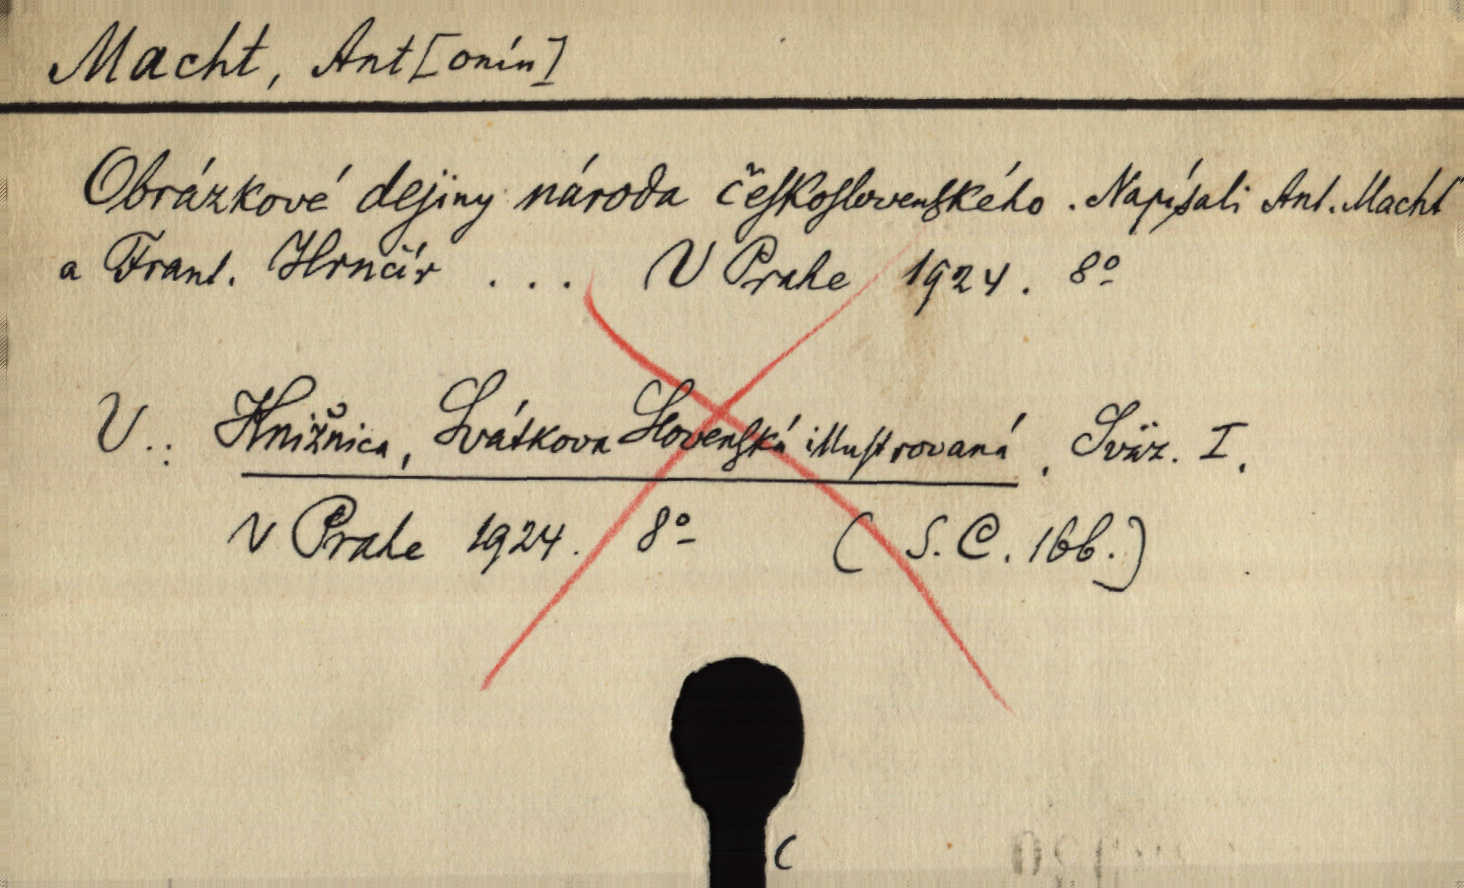 Macht, Ant[onín]
Obrázkové dejiny národa československého. Napísali Ant. Macht
a Frant. Hrnčír ... V Prahe 1924. 8º
V.: Knižnica, Svátkova Slovenská illustrovaná. Sväz. I.
V Prahe 1924. 8º (S. C. 166.)
C